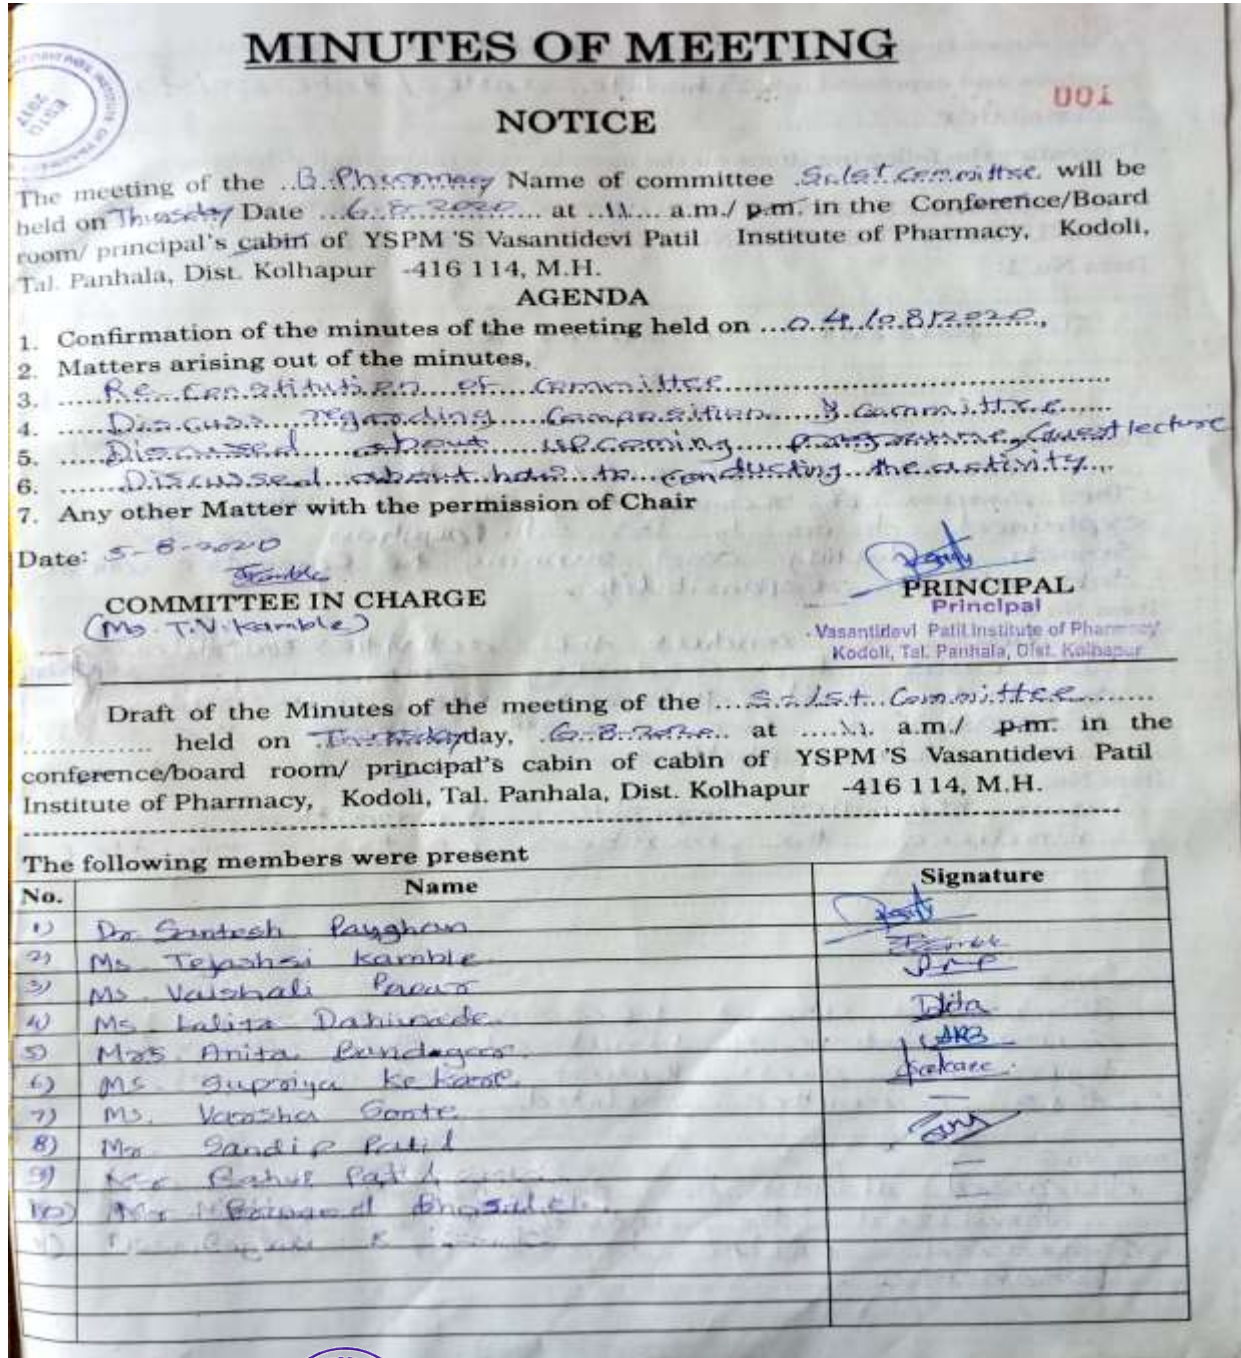 MINUTES OF MEETING
001
NOTICE
ESTD
2017
The meeting of the ..B.Pharmacy Name of committee .Sc/st.committee. will be
held on Thursday Date ...6.8.2020...... at ..11.... a.m./ p.m. in the Conference/Board
room/ principal's cabin of YSPM 'S Vasantidevi Patil Institute of Pharmacy, Kodoli,
Tal. Panhala, Dist. Kolhapur -416 114, M.H.
AGENDA
1. Confirmation of the minutes of the meeting held on ...04/08/2020....,
2. Matters arising out of the minutes,
3. .....Re-Constitution of committee
4. .....Discuss regarding Composition committee
5. .....Discussed about upcoming programme, Guest lecture
6. .....Discussed about how to conducting the activity...
7. Any other Matter with the permission of Chair
Date: 5-8-2020
COMMITTEE IN CHARGE
PRINCIPAL
(Ms. T.V. Kamble)
Principal
Vasantidevi Patil Institute of Pharmacy
Kodoli, Tal. Panhala, Dist. Kolhapur
Draft of the Minutes of the meeting of the ...Sc/St. Committee.......
.............. held on .Thursdayday, .6.8.2020.. at .....11. a.m./ p.m. in the
conference/board room/ principal's cabin of cabin of YSPM 'S Vasantidevi Patil
Institute of Pharmacy, Kodoli, Tal. Panhala, Dist. Kolhapur -416 114, M.H.
The following members were present
No. Name Signature
1) Dr Santosh Payghan
2) Ms. Tejashri Kamble
3) Ms. Vaishali Pawar
4) Ms. Lalita Dahiwade
5) Mrs. Anita
6) Ms. Supriya Kekare
7) Ms. Varsha Gonte
8) Mr. Sandip Patil
9) Mr. Rahul Patil
10) Mr
11)